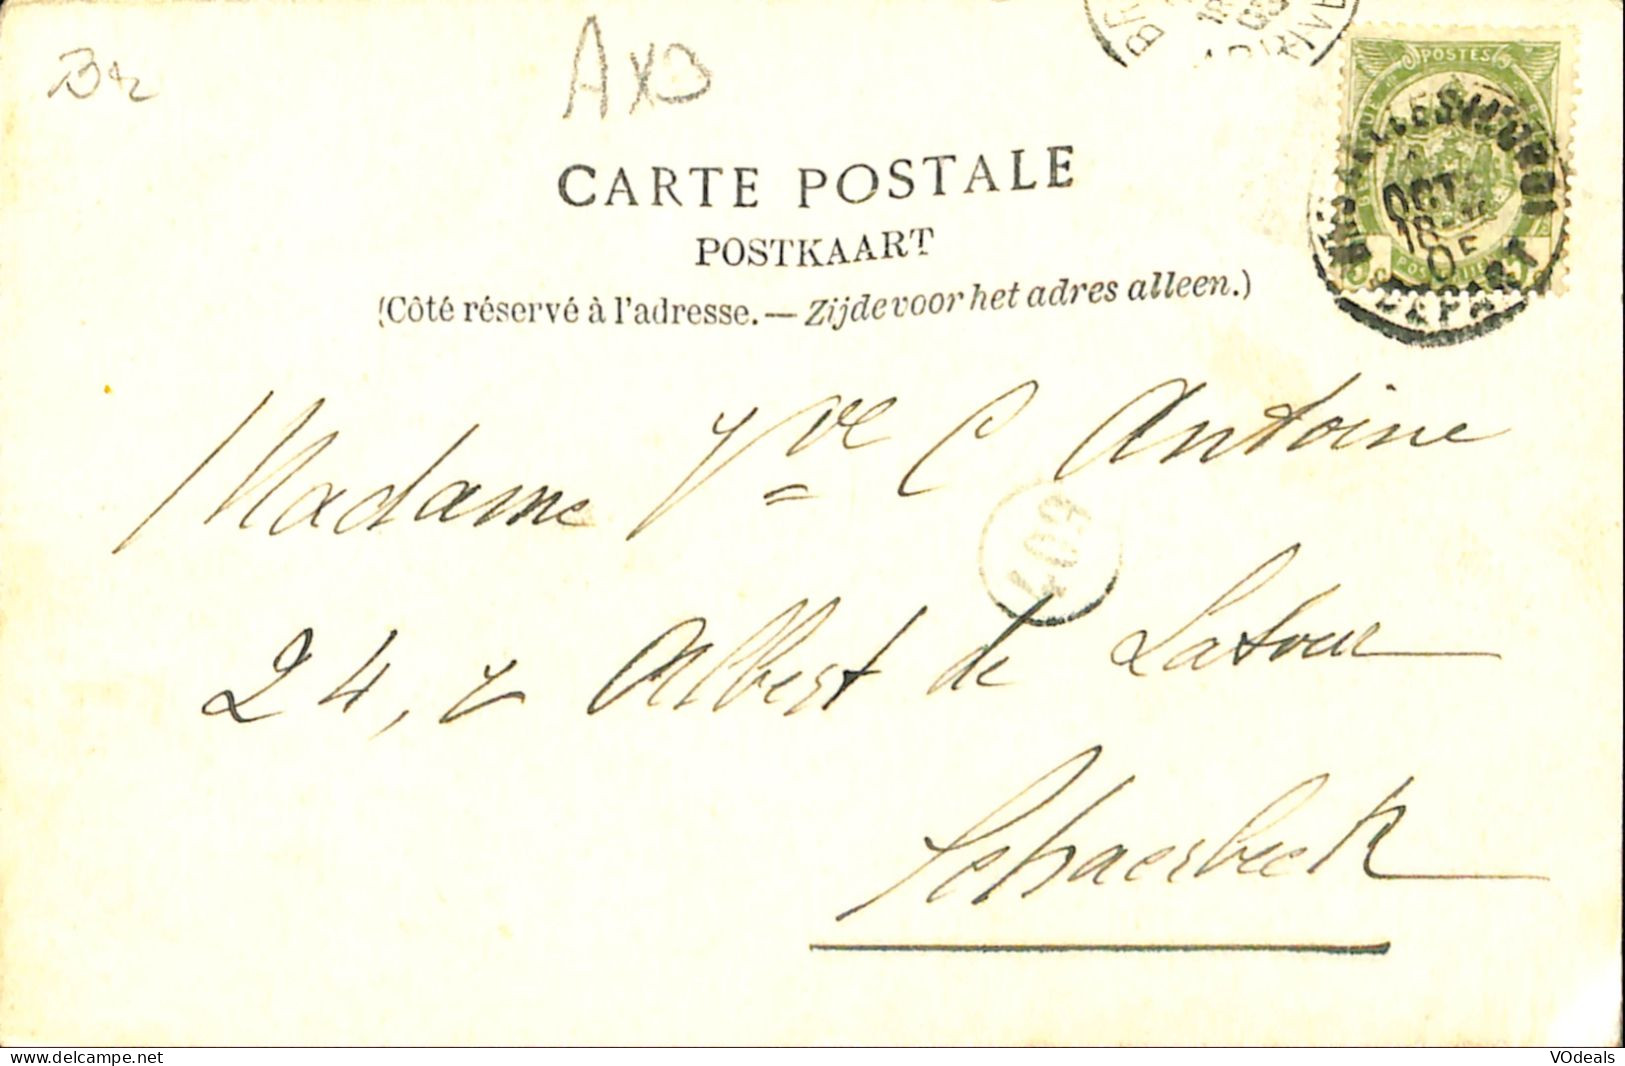 Br
AXD
CARTE POSTALE
POSTKAART
(Côté réservé à l'adresse. — Zijde voor het adres alleen.)
POSTES
DEPART
OCT
18
05
Madame Vve C Antoine
403
24, r Albert de Latour
Schaerbeek
https://www.delcampe.net
VOdeals